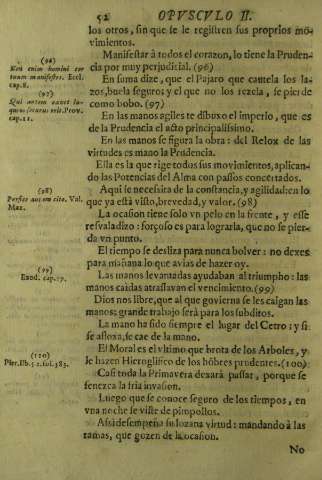 52 OPVSCVLO II.
los otros, sin que se le registren sus proprios mo-
vimientos.
Manifestar à todos el corazon, lo tiene la Pruden-
cia por muy perjudicial. (96)
En suma dize, que el Pajaro que cautela los la-
zos, buela seguro; y el que no los rezela, se pierde
como bobo. (97)
En las manos agiles te dibuxo el imperio, que es
de la Prudencia el acto principalissimo.
En las manos se figura la obra: del Relox de las
virtudes es mano la Prudencia.
Ella es la que rige todas sus movimientos, aplican-
do las Potencias del Alma con passos concertados.
Aqui se necessita de la constancia, y agilidad: en lo
que ya està visto, brevedad, y valor. (98)
La ocasion tiene solo vn pelo en la frente, y esse
resvaladizo: forçoso es para lograrla, que no se pier-
da vn punto.
El tiempo se desliza para nunca bolver: no dexes
para mañana lo que avias de hazer oy.
Las manos levantadas ayudaban al triumpho: las
manos caidas atrassavan el vencimiento. (99)
Dios nos libre, que al que govierna se les caigan las
manos; grande trabajo serà para los subditos.
La mano ha sido siempre el lugar del Cetro: y si
se afloxa, se cae de la mano.
El Moral es el vltimo que brota de los Arboles, y
le hazen Hieroglifico de los hõbres prudentes. (100)
Casi toda la Primavera dexarà passar, porque se
fenezca la fria invasion.
Luego que se conoce seguro de los tiempos, en
vna noche se viste de pimpollos.
Assi desempeña su lozana virtud: mandando à las
ramas, que gozen de la ocasion.
No
(96)
Non enim homini cor
tuum manifestes. Eccl.
cap. 8.
(97)
Qui autem cavet la-
queos securus erit. Prov.
cap. 11.
(98)
Val.
Max.
(99)
Exod. cap. 17.
(100)
Pier. lib. 52. fol. 383.